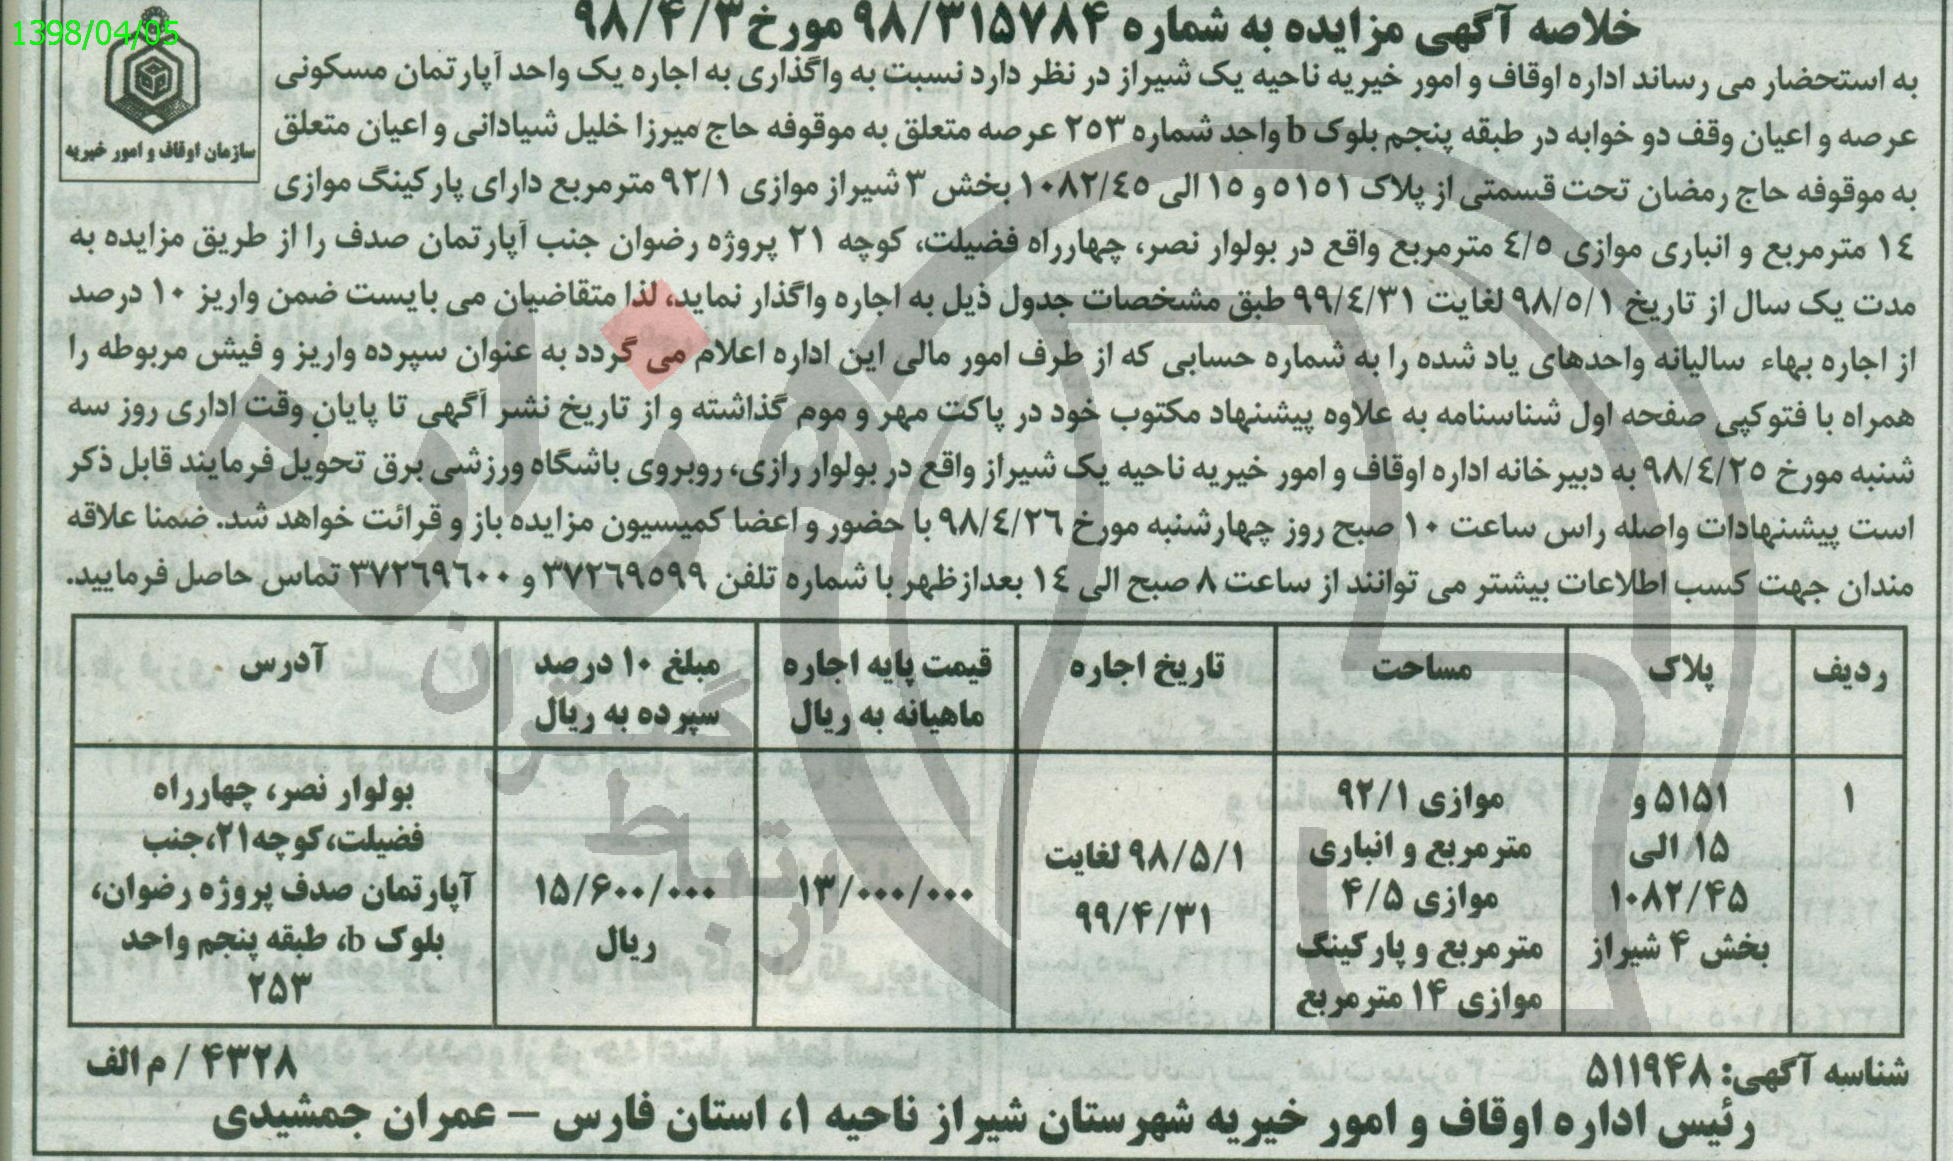 1398/04/05
خلاصه آگهی مزایده به شماره ۹۸/۳۱۵۷۸۴ مورخ ۹۸/۴/۳
سازمان اوقاف و امور خیریه
به استحضار می رساند اداره اوقاف و امور خیریه ناحیه یک شیراز در نظر دارد نسبت به واگذاری به اجاره یک واحد آپارتمان مسکونی
عرصه و اعیان وقف دو خوابه در طبقه پنجم بلوک b واحد شماره ۲۵۳ عرصه متعلق به موقوفه حاج میرزا خلیل شیادانی و اعیان متعلق
به موقوفه حاج رمضان تحت قسمتی از پلاک ۵۱۵۱ و ۱۵ الی ۱۰۸۲/۴۵ بخش ۳ شیراز موازی ۹۲/۱ مترمربع دارای پارکینگ موازی
۱۴ مترمربع و انباری موازی ۴/۵ مترمربع واقع در بولوار نصر، چهارراه فضیلت، کوچه ۲۱ پروژه رضوان جنب آپارتمان صدف را از طریق مزایده به
مدت یک سال از تاریخ ۹۸/۵/۱ لغایت ۹۹/۴/۳۱ طبق مشخصات جدول ذیل به اجاره واگذار نماید، لذا متقاضیان می بایست ضمن واریز ۱۰ درصد
از اجاره بهاء سالیانه واحدهای یاد شده را به شماره حسابی که از طرف امور مالی این اداره اعلام می گردد به عنوان سپرده واریز و فیش مربوطه را
همراه با فتوکپی صفحه اول شناسنامه به علاوه پیشنهاد مکتوب خود در پاکت مهر و موم گذاشته و از تاریخ نشر آگهی تا پایان وقت اداری روز سه
شنبه مورخ ۹۸/۴/۲۵ به دبیرخانه اداره اوقاف و امور خیریه ناحیه یک شیراز واقع در بولوار رازی، روبروی باشگاه ورزشی برق تحویل فرمایند قابل ذکر
است پیشنهادات واصله راس ساعت ۱۰ صبح روز چهارشنبه مورخ ۹۸/۴/۲۶ با حضور و اعضا کمیسیون مزایده باز و قرائت خواهد شد. ضمنا علاقه
مندان جهت کسب اطلاعات بیشتر می توانند از ساعت ۸ صبح الی ۱۴ بعدازظهر با شماره تلفن ۳۷۲۶۹۵۹۹ و ۳۷۲۶۹۶۰۰ تماس حاصل فرمایید.
ردیف پلاک مساحت تاریخ اجاره قیمت پایه اجاره ماهیانه به ریال مبلغ ۱۰ درصد سپرده به ریال آدرس
۱
۵۱۵۱ و
۱۵ الی
۱۰۸۲/۴۵
بخش ۴ شیراز
موازی ۹۲/۱
مترمربع و انباری
موازی ۴/۵
مترمربع و پارکینگ
موازی ۱۴ مترمربع
۹۸/۵/۱ لغایت
۹۹/۴/۳۱
۱۳/۰۰۰/۰۰۰
۱۵/۶۰۰/۰۰۰
ریال
بولوار نصر، چهارراه
فضیلت،کوچه۲۱،جنب
آپارتمان صدف پروژه رضوان،
بلوک b، طبقه پنجم واحد
۲۵۳
شناسه آگهی: ۵۱۱۹۴۸
۴۳۲۸ / م الف
رئیس اداره اوقاف و امور خیریه شهرستان شیراز ناحیه ۱، استان فارس – عمران جمشیدی
هزاره
ارتباط گستران